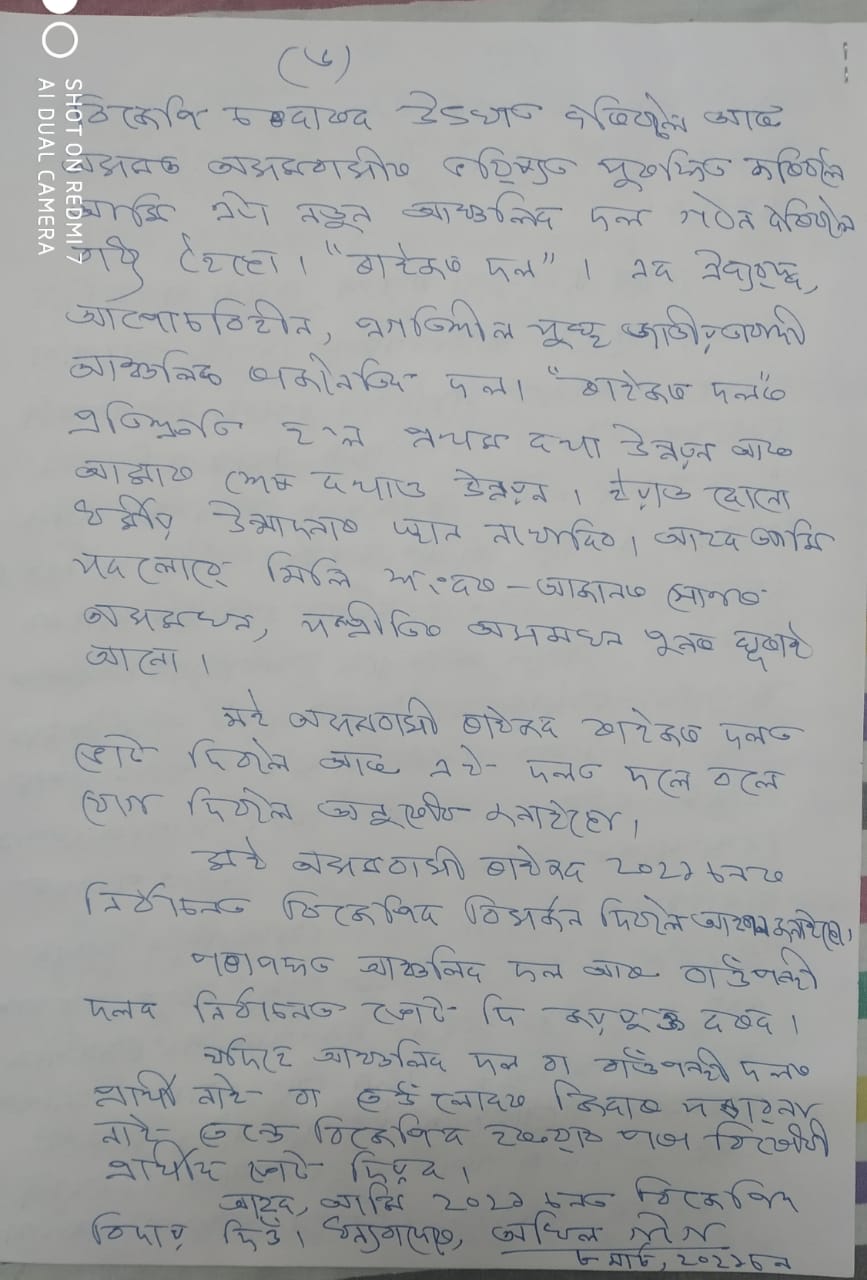 (৬)
বিজেপি চৰকাৰক উৎখাত কৰিবলৈ আৰু
অসমত অসমবাসীৰ ভৱিষ্যত সুৰক্ষিত কৰিবলৈ
আমি এটা নতুন আঞ্চলিক দল গঠন কৰিবলৈ
বাধ্য হৈছো। "ৰাইজৰ দল"। এক ঐক্যবদ্ধ,
আপোচবিহীন, প্ৰগতিশীল সুস্থ জাতীয়তাবাদী
আঞ্চলিক ৰাজনৈতিক দল। "ৰাইজৰ দল"ৰ
প্ৰতিশ্ৰুতি হ'ল প্ৰথম কথা উন্নয়ন আৰু
আমাৰ শেষ কথাও উন্নয়ন। ইয়াত কোনো
ধৰ্মীয় উন্মাদনাৰ স্থান নাথাকিব। আহক আমি
সকলোৱে মিলি শংকৰ-আজানৰ সোণৰ
অসমখন, সম্প্ৰীতিৰ অসমখন পুনৰ ঘূৰাই
আনো।
মই অসমবাসী ৰাইজক ৰাইজৰ দলত
ভোট দিবলৈ আৰু এই দলত দলে বলে
যোগ দিবলৈ অনুৰোধ জনাইছো।
মই অসমবাসী ৰাইজক ২০২১ চনৰ
নিৰ্বাচনত বিজেপিক বিসৰ্জন দিবলৈ আহ্বান জনাইছো।
পৰাপক্ষত আঞ্চলিক দল আৰু বাওঁপন্থী
দলক নিৰ্বাচনত ভোট দি জয়যুক্ত কৰক।
যদিহে আঞ্চলিক দল বা বাওঁপন্থী দলৰ
প্ৰাৰ্থী নাই বা তেওঁলোকৰ জিকাৰ সম্ভাৱনা
নাই তেন্তে বিজেপিক হৰুৱাব পৰা বিৰোধী
প্ৰাৰ্থীক ভোট দিয়ক।
আহক, আমি ২০২১ চনত বিজেপিক
বিদায় দিওঁ। ধন্যবাদেৰে, অখিল গগৈ
৮ মাৰ্চ, ২০২১ চন
SHOT ON REDMI 7
AI DUAL CAMERA